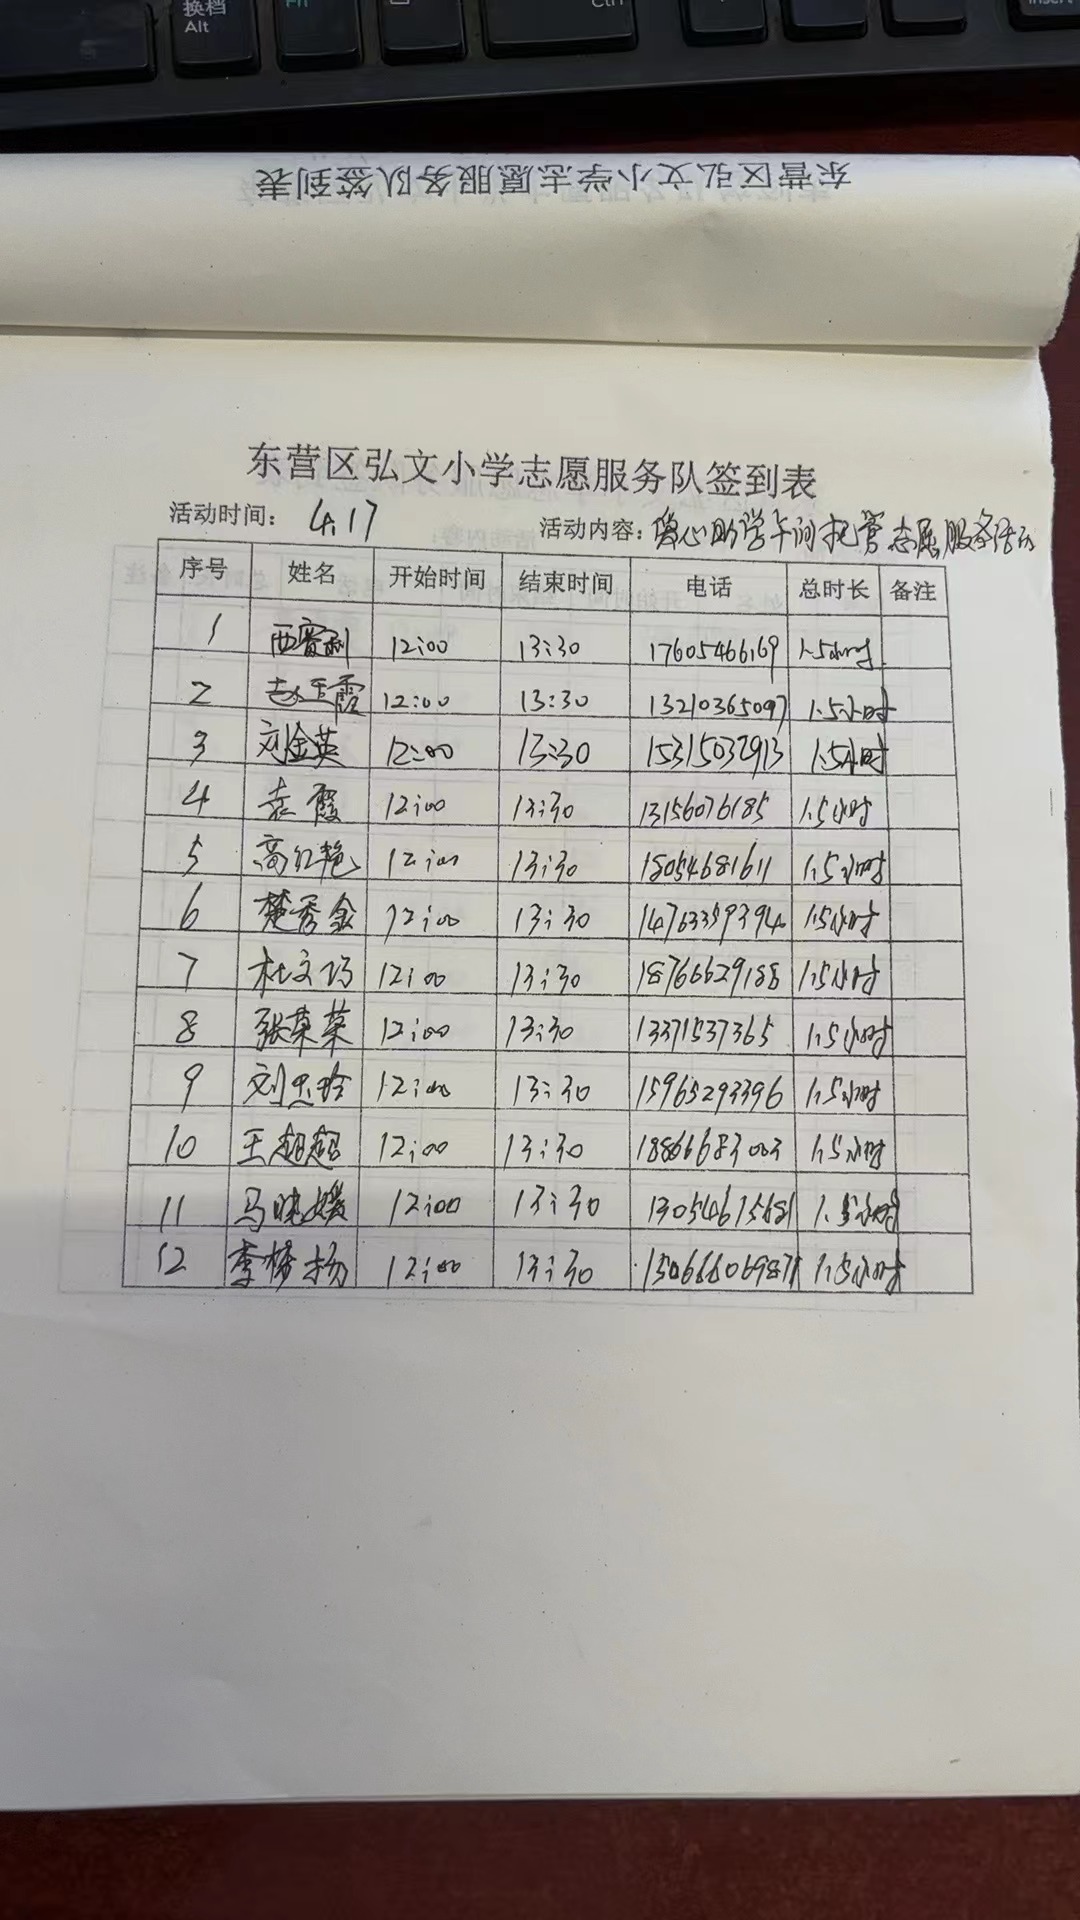 换档
Alt
Fn
Ctrl
Insert
东营区弘文小学志愿服务队签到表
东营区弘文小学志愿服务队签到表
活动时间： 4.17 活动内容：爱心助学午间托管志愿服务活动
序号 姓名 开始时间 结束时间 电话 总时长 备注
1 西宝利 12:00 13:30 17605466169 1.5小时
2 赵玉霞 12:00 13:30 13210365097 1.5小时
3 刘金英 12:00 13:30 15315032913 1.5小时
4 袁霞 12:00 13:30 13156076185 1.5小时
5 高红艳 12:00 13:30 18054681611 1.5小时
6 楚秀金 12:00 13:30 14763359394 1.5小时
7 杜文巧 12:00 13:30 18766629188 1.5小时
8 张荣荣 12:00 13:30 13371537365 1.5小时
9 刘思玲 12:00 13:30 15965293396 1.5小时
10 王超超 12:00 13:30 18866683003 1.5小时
11 马晓媛 12:00 13:30 13054615681 1.5小时
12 李梦杨 12:00 13:30 1.5小时